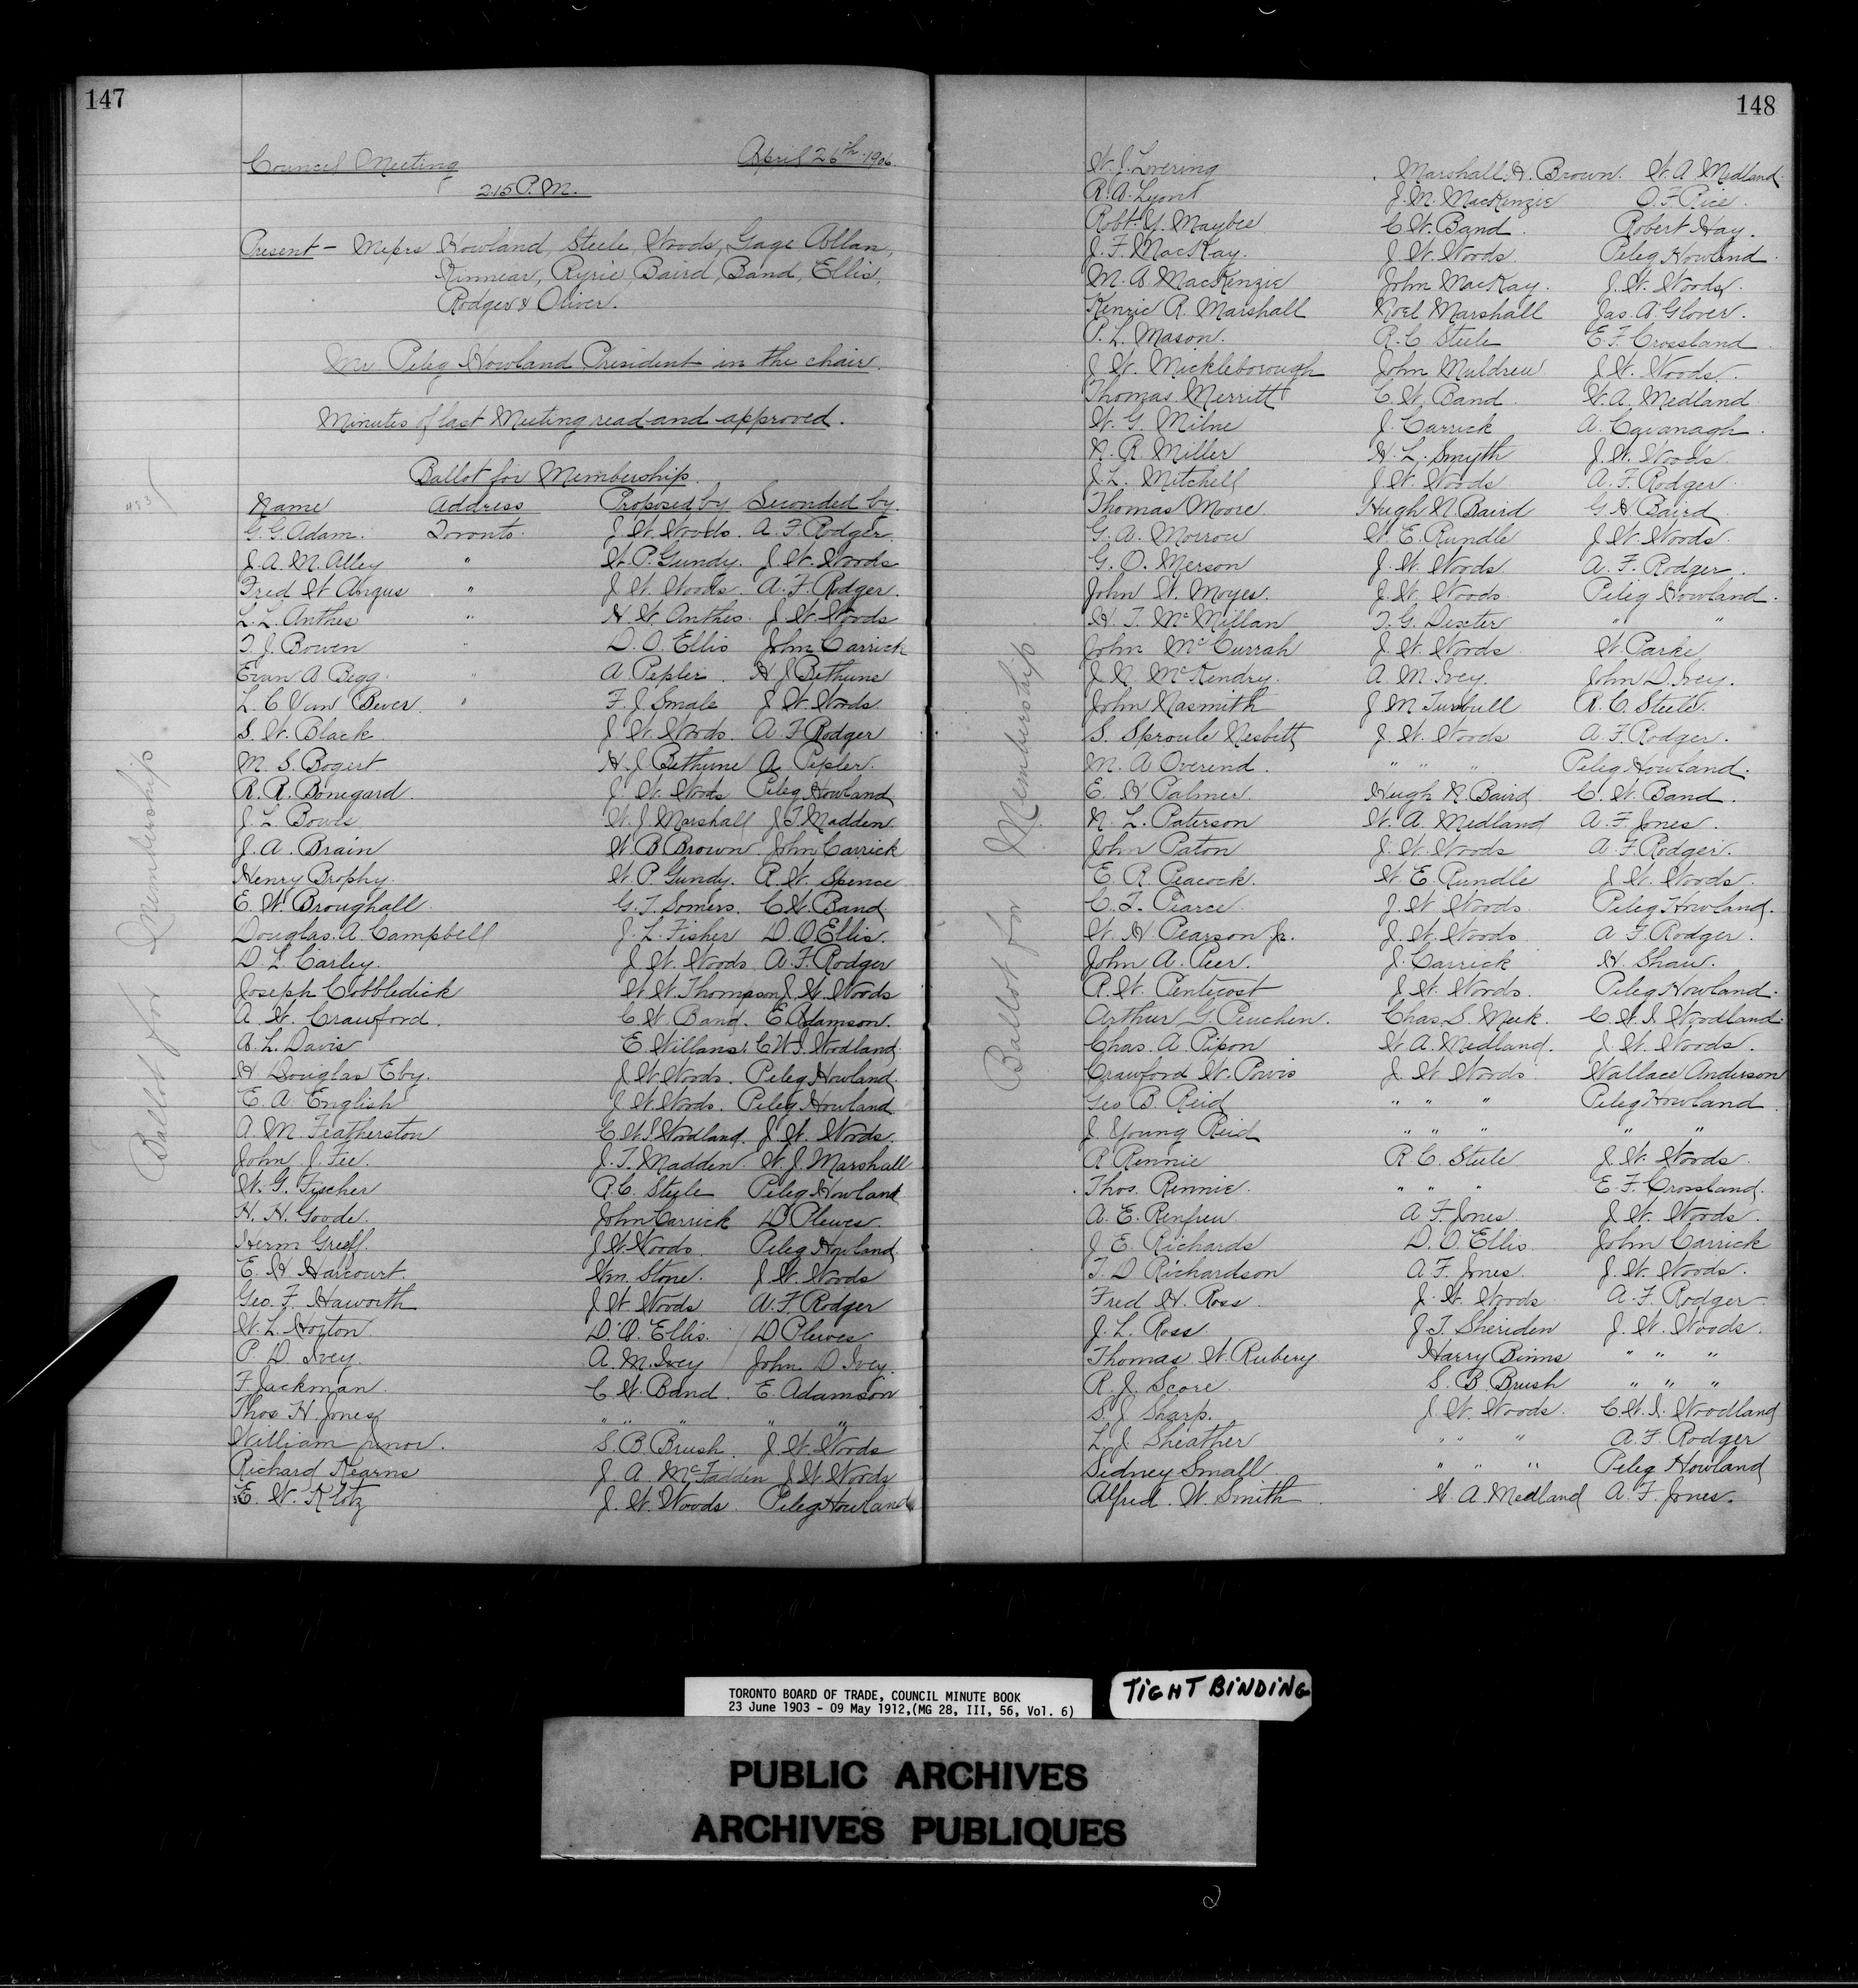 147
Council Meeting April 26th 1906.
2.15 P.M.
Present - Messrs Howland, Steele, Woods, Gage Allan,
Kinnear, Ryrie, Baird, Band, Ellis,
Rodger & Oliver.
Mr Peleg Howland President in the chair.
Minutes of last Meeting read and approved.
Ballot for Membership.
Name Address Proposed by Seconded by.
G. G. Adam. Toronto. J. W. Woods. A. F. Rodger.
J. A. M. Alley " W. P. Gundy. J. W. Woods
Fred W Angus " J. W. Woods. A. F. Rodger.
L. L. Anthes " H. W. Anthes. J. W. Woods
T. J. Bowen " D. O. Ellis John Carrick
Evan A Begg. " A. Pepler. H J Bethune
L. C Van Bever. " F. J Smale J. W. Woods
S. W. Black. J. W. Woods. A. F Rodger
M. S. Bogert H. J. Bethune A. Pepler.
R. R. Bongard. J. W. Woods Peleg Howland
J. L. Bowes W. J. Marshall J. T. Madden.
J. A. Brain W. B Brown John Carrick
Henry Brophy. W. P. Gundy. R. W. Spence
E. W. Broughall. G. T. Somers. C W. Band.
Douglas. A. Campbell J. L. Fisher D. O Ellis.
D. L. Carley. J. W. Woods A. F. Rodger
Joseph Cobbledick W. W. Thompson J. W. Woods
A. W. Crawford. C W. Band. E. Adamson.
A. L. Davis E. Willans. C W I. Woodland.
H Douglas Eby. J. W. Woods. Peleg Howland.
E. A. English J. W. Woods. Peleg Howland
A. M. Featherston C. W. I Woodland. J. W. Woods.
John J. Fee. J. T. Madden. W. J. Marshall
W. G. Fischer R. C. Steele Peleg Howland
H. H. Goode. John Carrick D Plewes.
Herm Greeff. J. W. Woods. Peleg Howland
E. H Harcourt. Wm. Stone. J. W. Woods
Geo. F. Haworth J. W. Woods A. F. Rodger
W. L. Horton D. O. Ellis. D Plewes
P. D. Ivey. A. M. Ivey John D Ivey.
F. Jackman. C. W. Band. E. Adamson
Thos H. Jones " " " " "
William Junor. S. B. Brush. J. W. Woods
Richard Kearns J. A. McFadden J. W. Woods
E. W. Klotz J. W. Woods. Peleg Howland
Ballot for Membership
148
W. J. Lovering Marshall. H. Brown. W. A Medland.
R. A. Lyont J. M. MacKenzie O. F Rice.
Robt. Y. Maybee C. W. Band. Robert Hay.
J. F. MacKay. J. W. Woods. Peleg Howland.
M. A. MacKenzie John MacKay. J. W. Woods.
Kenric R. Marshall Noel Marshall Jas. A. Glover.
P. L. Mason. R. C Steele E. F. Crossland.
J. W. Mickleborough John Muldrew J. W. Woods.
Thomas Merritt C. W. Band. W. A. Medland
W. G. Milne J. Carrick A. Cavanagh.
N. R. Miller H. L. Smyth J. W. Woods.
J. L. Mitchell J. W. Woods A. F. Rodger.
Thomas Moore Hugh N Baird G H Baird
G. A. Morrow W. E. Rundle J. W. Woods.
G. O. Merson J. W. Woods A. F. Rodger.
John W. Moyes. J. W. Woods. Peleg Howland.
H. T. McMillan T. G. Dexter " "
John McCurrah J. W. Woods. W. Parke
J. N. McKendry. A. M. Ivey. John D. Ivey.
John Nasmith J M Turnbull R. C. Steele.
S. Sproule Nesbitt J. W. Woods A. F. Rodger.
M. A Overend. " " " Peleg Howland.
E. H Palmer. Hugh N. Baird C. W. Band.
N. L. Paterson W. A. Medland A. F. Jones.
John Paton J. W. Woods A. F. Rodger.
E. R. Peacock. W. E. Rundle J. W. Woods.
C. T. Pearce. J. W. Woods. Peleg Howland.
W. H. Pearson Jr. J. W. Woods A. F. Rodger.
John A. Peer. J. Carrick H. Shaw.
R. W. Penticost J. W. Woods. Peleg Howland.
Arthur G. Peuchen. Chas. S. Meek. C. W. I. Woodland.
Chas. A. Pipon W. A. Medland. J. W. Woods.
Crawford W. Powis J. W. Woods Wallace Anderson
Geo B. Reid " " " Peleg Howland.
J. Young Reid " " " " "
R Rennie R C. Steele J. W. Woods.
Thos. Rennie. " " " E. F. Crossland.
A. E. Renfrew A. F. Jones. J. W. Woods.
J. E. Richards D. O. Ellis. John Carrick
T. D Richardson A. F. Jones. J. W. Woods.
Fred H. Ross J. W. Woods A. F. Rodger
J. L. Ross. J. T. Sheriden J. W. Woods.
Thomas W. Rubery Harry Binns " " "
R. J. Score. S. B. Brush " " "
S. J. Sharp. J. W. Woods. C. W. I. Woodland
L. J. Sheather " " " A. F. Rodger
Sidney Small " " " Peleg Howland
Alfred. W. Smith W. A. Medland A. F. Jones.
Ballot for Membership
TORONTO BOARD OF TRADE, COUNCIL MINUTE BOOK
23 June 1903 - 09 May 1912,(MG 28, III, 56, Vol. 6)
TIGHT BINDING
PUBLIC ARCHIVES
ARCHIVES PUBLIQUES
2